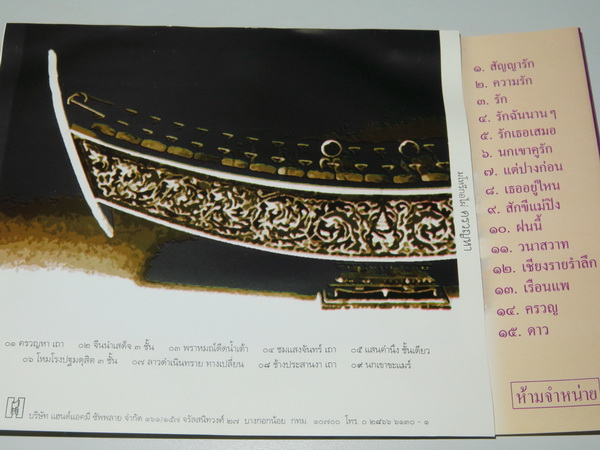 ๐๑ ครวญหา เถา ๐๒ จีนนำเสด็จ ๓ ชั้น ๐๓ พราหมณ์ดีดน้ำเต้า ๐๔ ชมแสงจันทร์ เถา ๐๕ แสนคำนึง ชั้นเดียว
๐๖ โหมโรงปฐมดุสิต ๓ ชั้น ๐๗ ลาวดำเนินทราย ทางเปลี่ยน ๐๘ ช้างประสานงา เถา ๐๙ นกเขาขะแมร์
บริษัท แฮนด์แอคมี ซัพพลาย จำกัด ๑๖๑/๑๕๗ จรัลสนิทวงศ์ ๒๗ บางกอกน้อย กทม. ๑๐๗๐๐ โทร. ๐ ๒๘๖๖ ๖๑๓๐ - ๑
ครวญหา
๑. สัญญารัก
๒. ความรัก
๓. รัก
๔. รักฉันนานๆ
๕. รักเธอเสมอ
๖. นกเขาคูรัก
๗. แต่ปางก่อน
๘. เธออยู่ไหน
๙. สักขีแม่ปิง
๑๐. ฝนนี้
๑๑. วนาสวาท
๑๒. เชียงรายรำลึก
๑๓. เรือนแพ
๑๔. ครวญ
๑๕. ดาว
ห้ามจำหน่าย